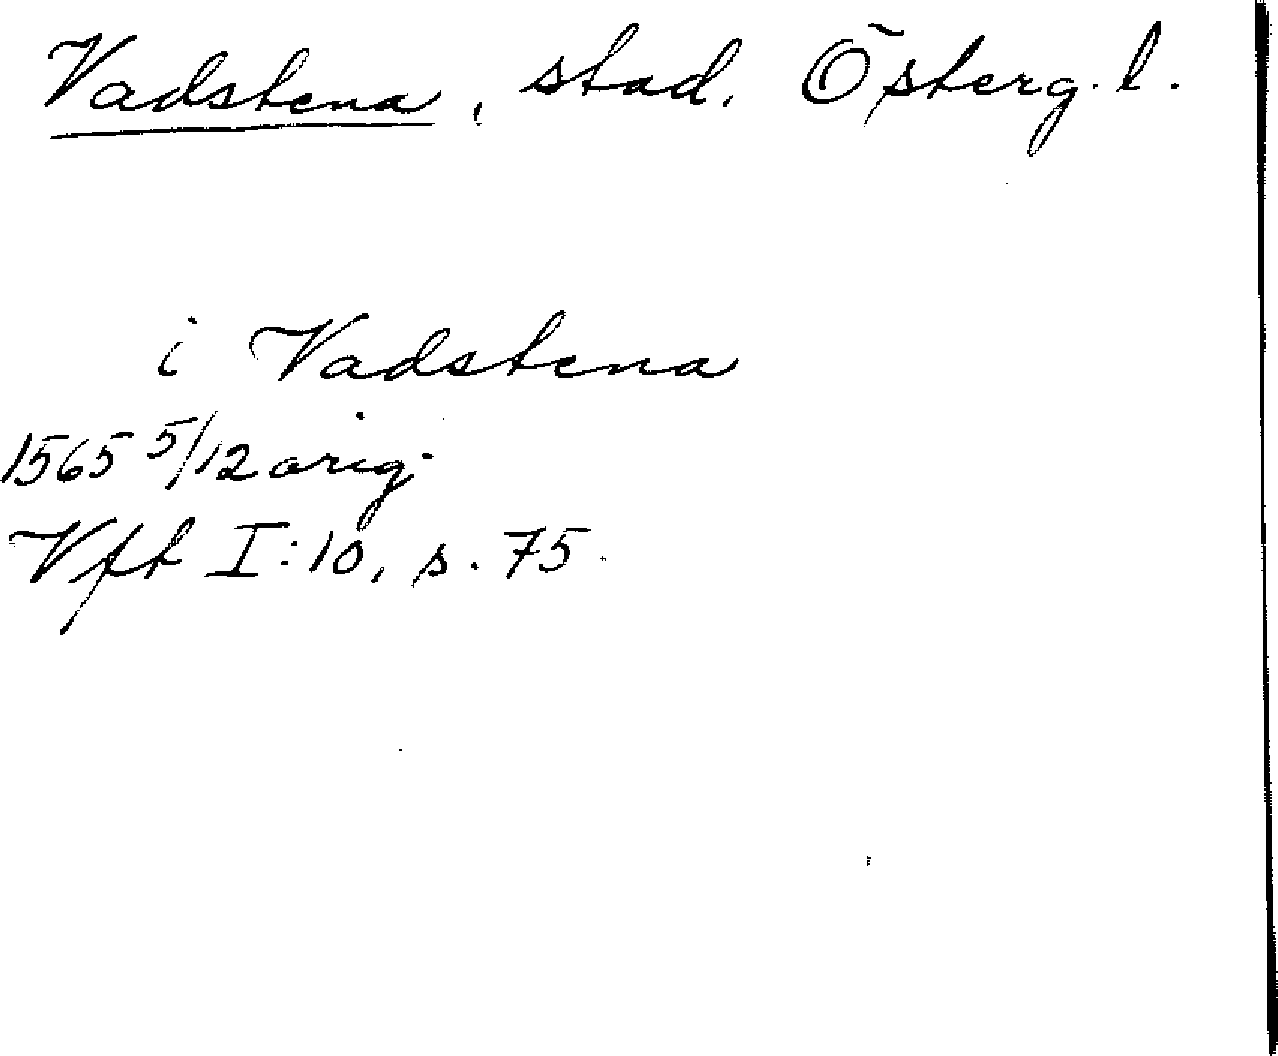 Vadstena, stad. Österg. l.
i Vadstena
1565 5/12 orig.
Vft I:10, s. 75.